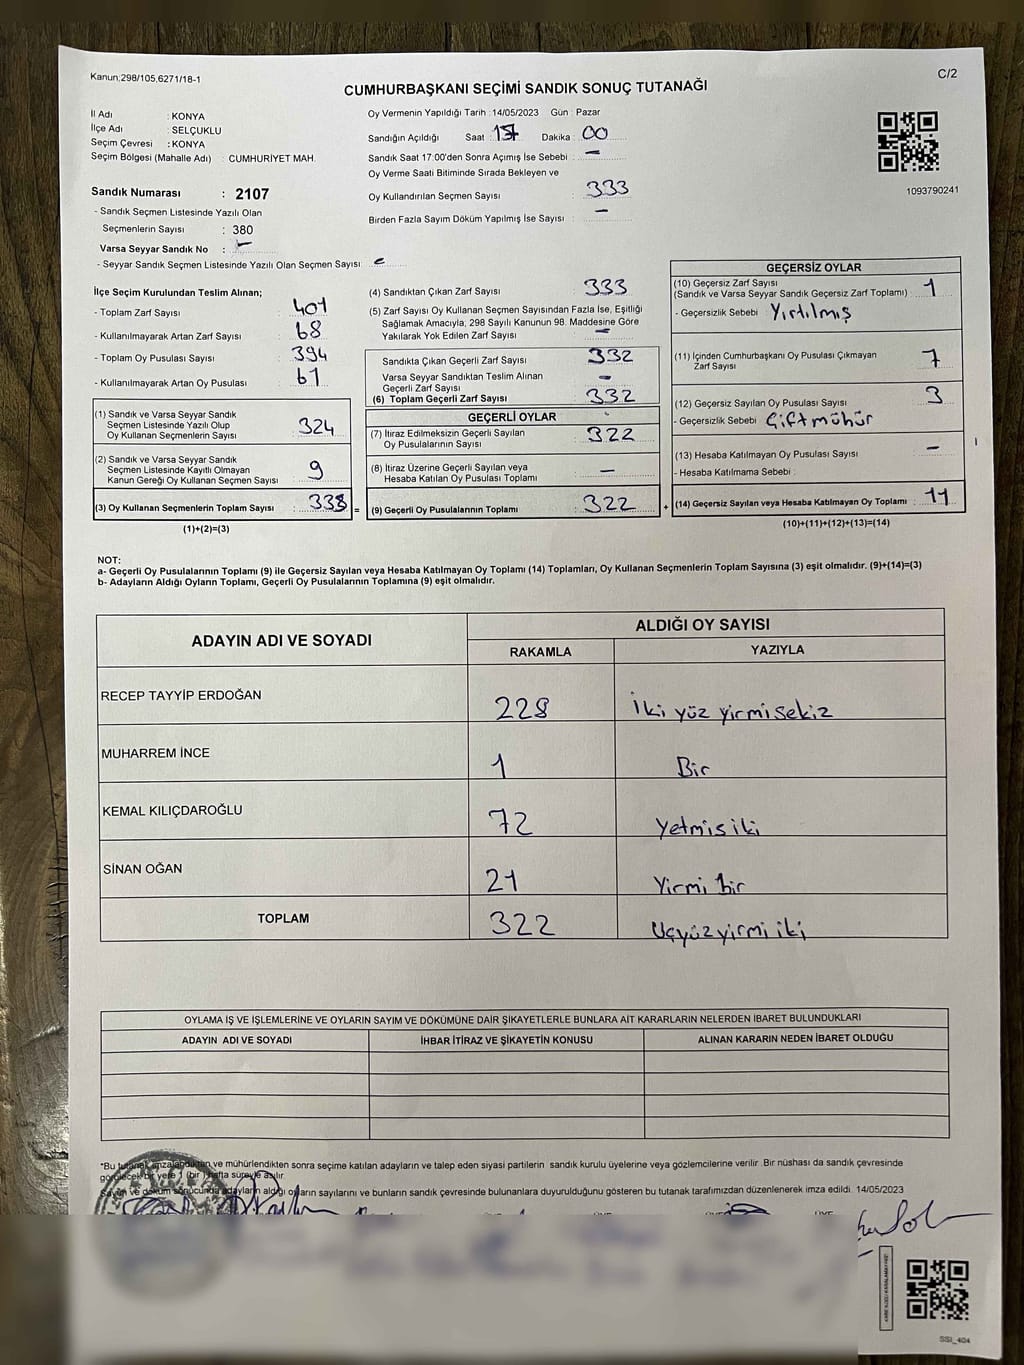 Kanun;298/105,6271/18-1
C/2
CUMHURBAŞKANI SEÇİMİ SANDIK SONUÇ TUTANAĞI
İl Adı : KONYA
İlçe Adı : SELÇUKLU
Seçim Çevresi : KONYA
Seçim Bölgesi (Mahalle Adı) : CUMHURİYET MAH.
Oy Vermenin Yapıldığı Tarih : 14/05/2023 Gün : Pazar
Sandığın Açıldığı Saat : Dakika : 00
Sandık Saat 17:00'den Sonra Açımış İse Sebebi : –
Oy Verme Saati Bitiminde Sırada Bekleyen ve
Oy Kullandırılan Seçmen Sayısı : 333
Birden Fazla Sayım Döküm Yapılmış İse Sayısı : –
1093790241
Sandık Numarası : 2107
- Sandık Seçmen Listesinde Yazılı Olan
Seçmenlerin Sayısı : 380
Varsa Seyyar Sandık No : –
- Seyyar Sandık Seçmen Listesinde Yazılı Olan Seçmen Sayısı:
İlçe Seçim Kurulundan Teslim Alınan;
- Toplam Zarf Sayısı : 401
- Kullanılmayarak Artan Zarf Sayısı : 68
- Toplam Oy Pusulası Sayısı : 394
- Kullanılmayarak Artan Oy Pusulası : 61
(1) Sandık ve Varsa Seyyar Sandık
Seçmen Listesinde Yazılı Olup
Oy Kullanan Seçmenlerin Sayısı : 324
(2) Sandık ve Varsa Seyyar Sandık
Seçmen Listesinde Kayıtlı Olmayan
Kanun Gereği Oy Kullanan Seçmen Sayısı : 9
(3) Oy Kullanan Seçmenlerin Toplam Sayısı : 333 =
(1)+(2)=(3)
(4) Sandıktan Çıkan Zarf Sayısı : 333
(5) Zarf Sayısı Oy Kullanan Seçmen Sayısından Fazla İse, Eşitliği
Sağlamak Amacıyla, 298 Sayılı Kanunun 98. Maddesine Göre
Yakılarak Yok Edilen Zarf Sayısı : –
Sandıkta Çıkan Geçerli Zarf Sayısı : 332
Varsa Seyyar Sandıktan Teslim Alınan
Geçerli Zarf Sayısı : –
(6) Toplam Geçerli Zarf Sayısı : 332
GEÇERLİ OYLAR
(7) İtiraz Edilmeksizin Geçerli Sayılan
Oy Pusulalarının Sayısı : 322
(8) İtiraz Üzerine Geçerli Sayılan veya
Hesaba Katılan Oy Pusulası Toplamı : –
(9) Geçerli Oy Pusulalarının Toplamı : 322 +
GEÇERSİZ OYLAR
(10) Geçersiz Zarf Sayısı
(Sandık ve Varsa Seyyar Sandık Geçersiz Zarf Toplamı) : 1
- Geçersizlik Sebebi : Yırtılmış
(11) İçinden Cumhurbaşkanı Oy Pusulası Çıkmayan
Zarf Sayısı : 7
(12) Geçersiz Sayılan Oy Pusulası Sayısı : 3
- Geçersizlik Sebebi : Çift mühür
(13) Hesaba Katılmayan Oy Pusulası Sayısı : –
- Hesaba Katılmama Sebebi :
(14) Geçersiz Sayılan veya Hesaba Katılmayan Oy Toplamı : 11
(10)+(11)+(12)+(13)=(14)
NOT:
a- Geçerli Oy Pusulalarının Toplamı (9) ile Geçersiz Sayılan veya Hesaba Katılmayan Oy Toplamı (14) Toplamları, Oy Kullanan Seçmenlerin Toplam Sayısına (3) eşit olmalıdır. (9)+(14)=(3)
b- Adayların Aldığı Oyların Toplamı, Geçerli Oy Pusulalarının Toplamına (9) eşit olmalıdır.
ADAYIN ADI VE SOYADI ALDIĞI OY SAYISI
RAKAMLA YAZIYLA
RECEP TAYYİP ERDOĞAN 228 İki yüz yirmi sekiz
MUHARREM İNCE 1 Bir
KEMAL KILIÇDAROĞLU 72 Yetmis iki
SİNAN OĞAN 21 Yirmi bir
TOPLAM 322 Uçyüz yirmi iki
OYLAMA İŞ VE İŞLEMLERİNE VE OYLARIN SAYIM VE DÖKÜMÜNE DAİR ŞİKAYETLERLE BUNLARA AİT KARARLARIN NELERDEN İBARET BULUNDUKLARI
ADAYIN ADI VE SOYADI İHBAR İTİRAZ VE ŞİKAYETİN KONUSU ALINAN KARARIN NEDEN İBARET OLDUĞU
*Bu tutanak imzalandıktan ve mühürlendikten sonra seçime katılan adayların ve talep eden siyasi partilerin sandık kurulu üyelerine veya gözlemcilerine verilir. Bir nüshası da sandık çevresinde
görülecek bir yere 1 (bir ) hafta süreyle asılır.
Sayım ve döküm sonucunda adayların aldığı oyların sayılarını ve bunların sandık çevresinde bulunanlara duyurulduğunu gösteren bu tutanak tarafımızdan düzenlenerek imza edildi. 14/05/2023
SSI_404